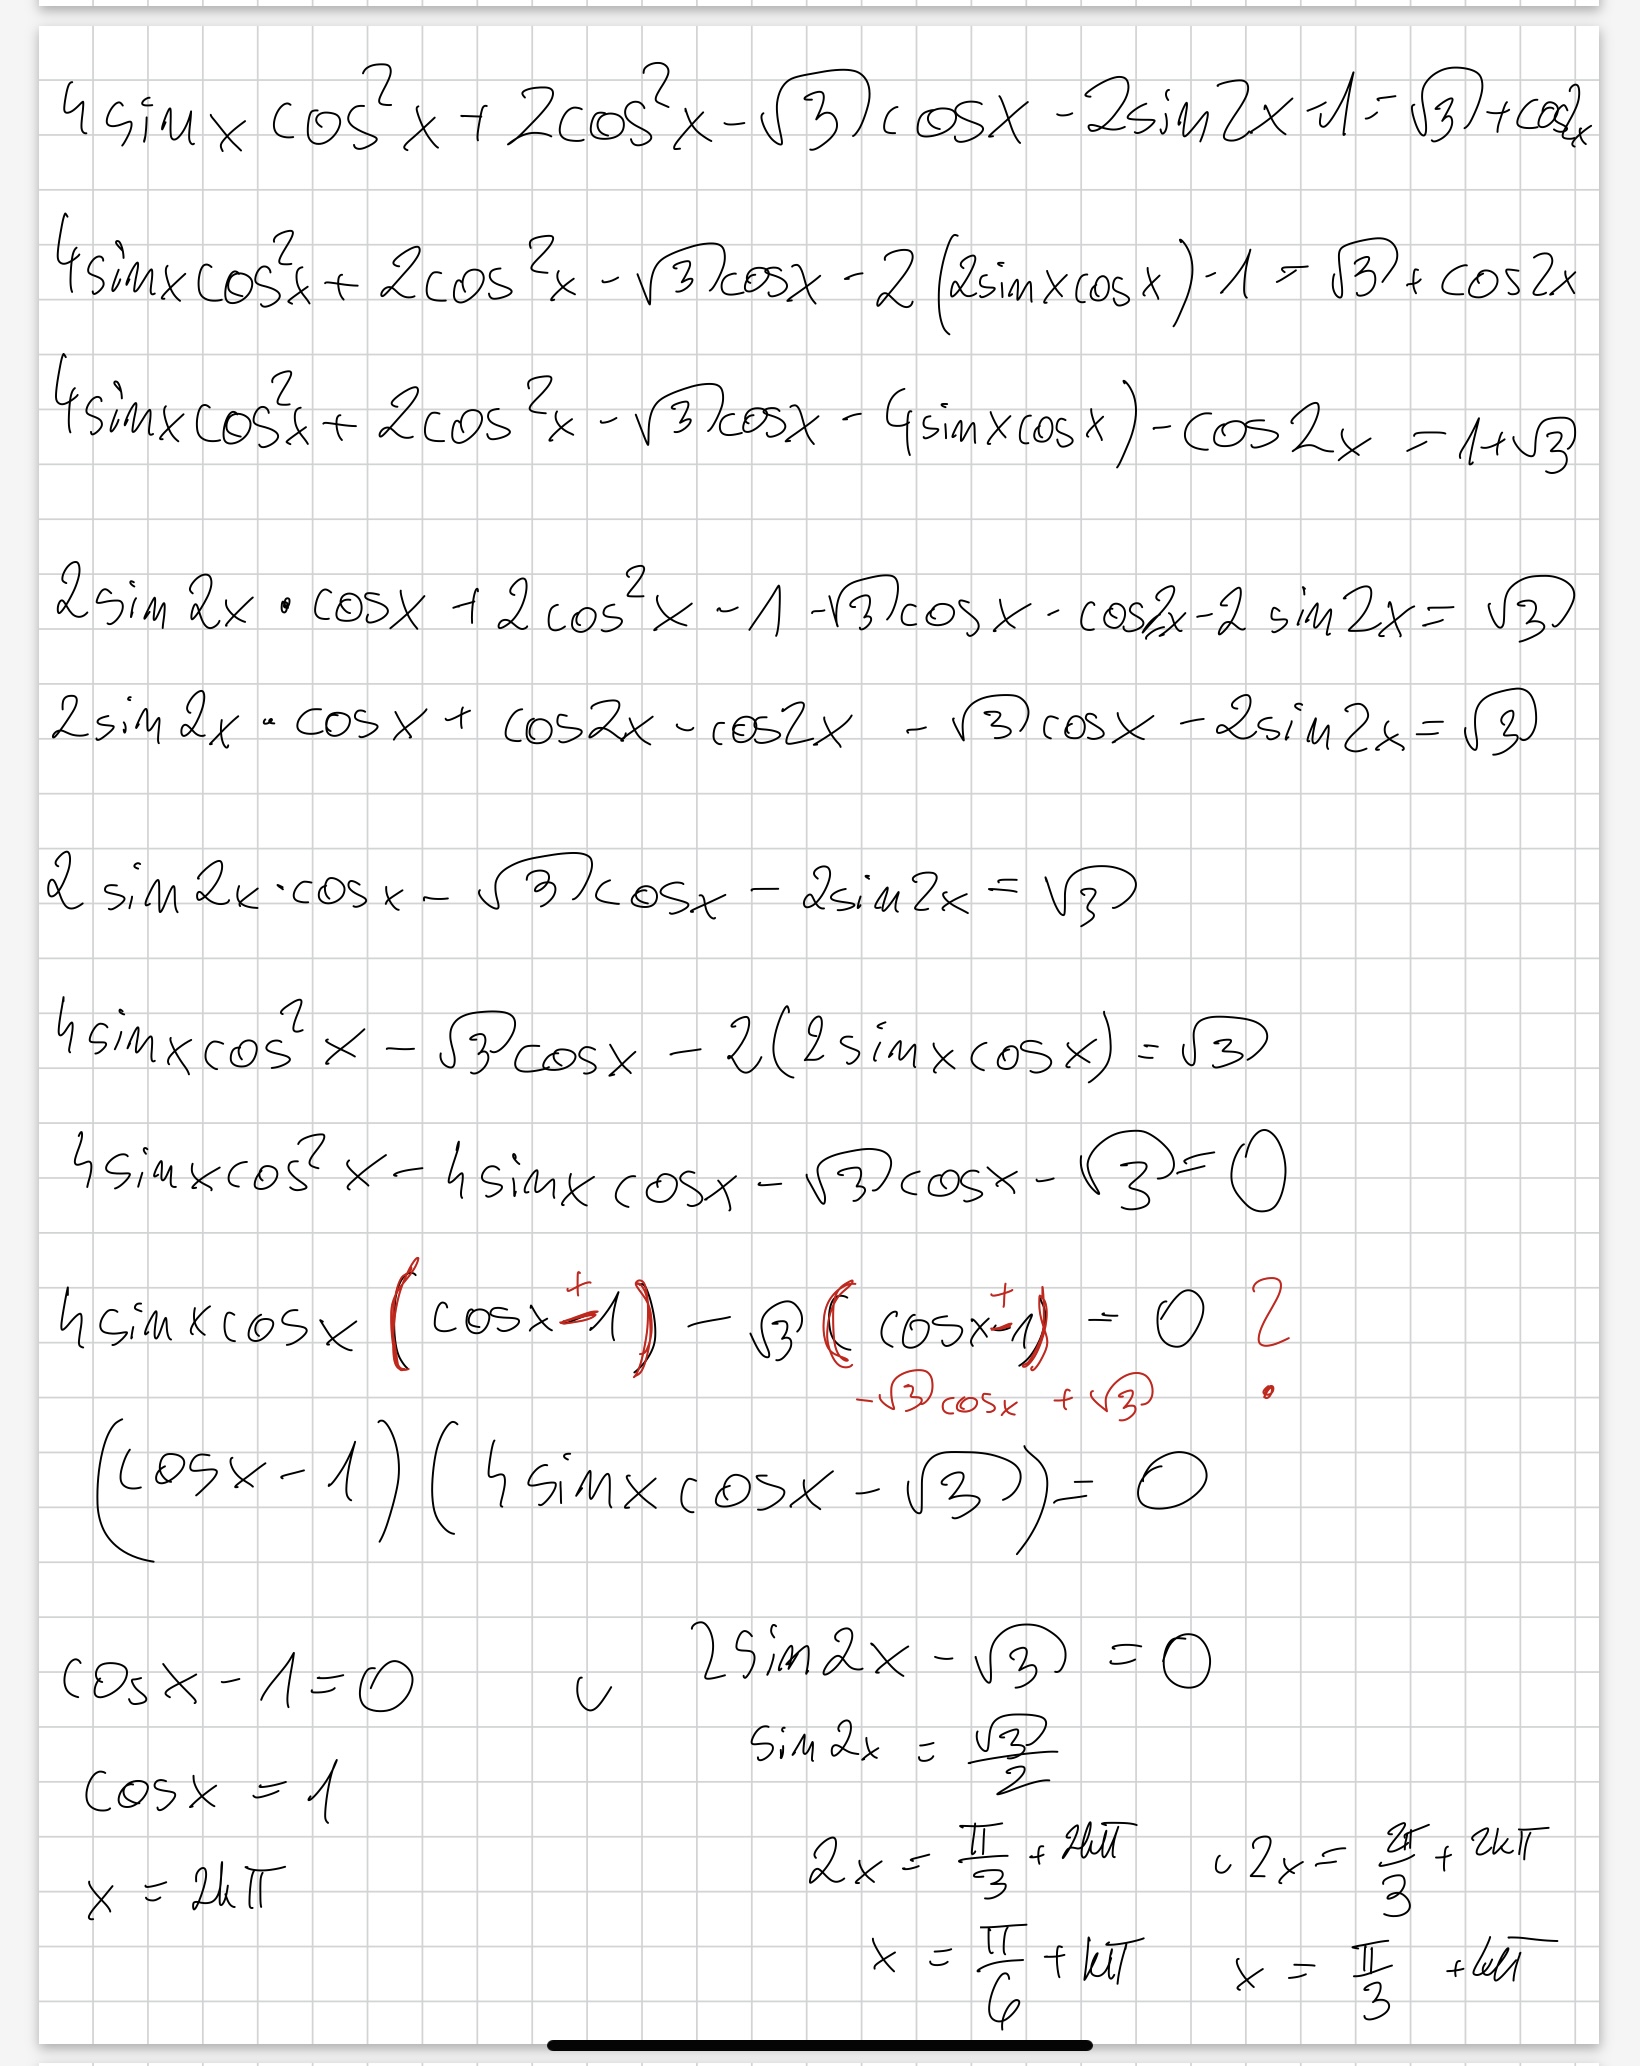 4sinx cos²x + 2cos²x - √3 cosx - 2sin2x - 1 = √3 + cos2x
4sinx cos²x + 2cos²x - √3 cosx - 2(2sinxcosx) - 1 = √3 + cos2x
4sinx cos²x + 2cos²x - √3 cosx - 4sinxcosx) - cos2x = 1+√3
2sin2x • cosx + 2cos²x - 1 - √3 cosx - cos2x - 2 sin2x = √3
2sin2x • cosx + cos2x - cos2x - √3 cosx - 2sin2x = √3
2sin2x • cosx - √3 cosx - 2sin2x = √3
4sinxcos²x - √3 cosx - 2(2sinxcosx) = √3
4sinxcos²x - 4sinxcosx - √3 cosx - √3 = 0
4sinxcosx (cosx ± 1) - √3 (cosx ± 1) = 0 ?
-√3 cosx + √3
(cosx - 1)(4sinxcosx - √3) = 0
cosx - 1 = 0 ∪ 2sin2x - √3 = 0
sin2x = √3/2
cosx = 1
2x = π/3 + 2kπ ∪ 2x = 2π/3 + 2kπ
x = 2kπ
x = π/6 + kπ x = π/3 + kπ